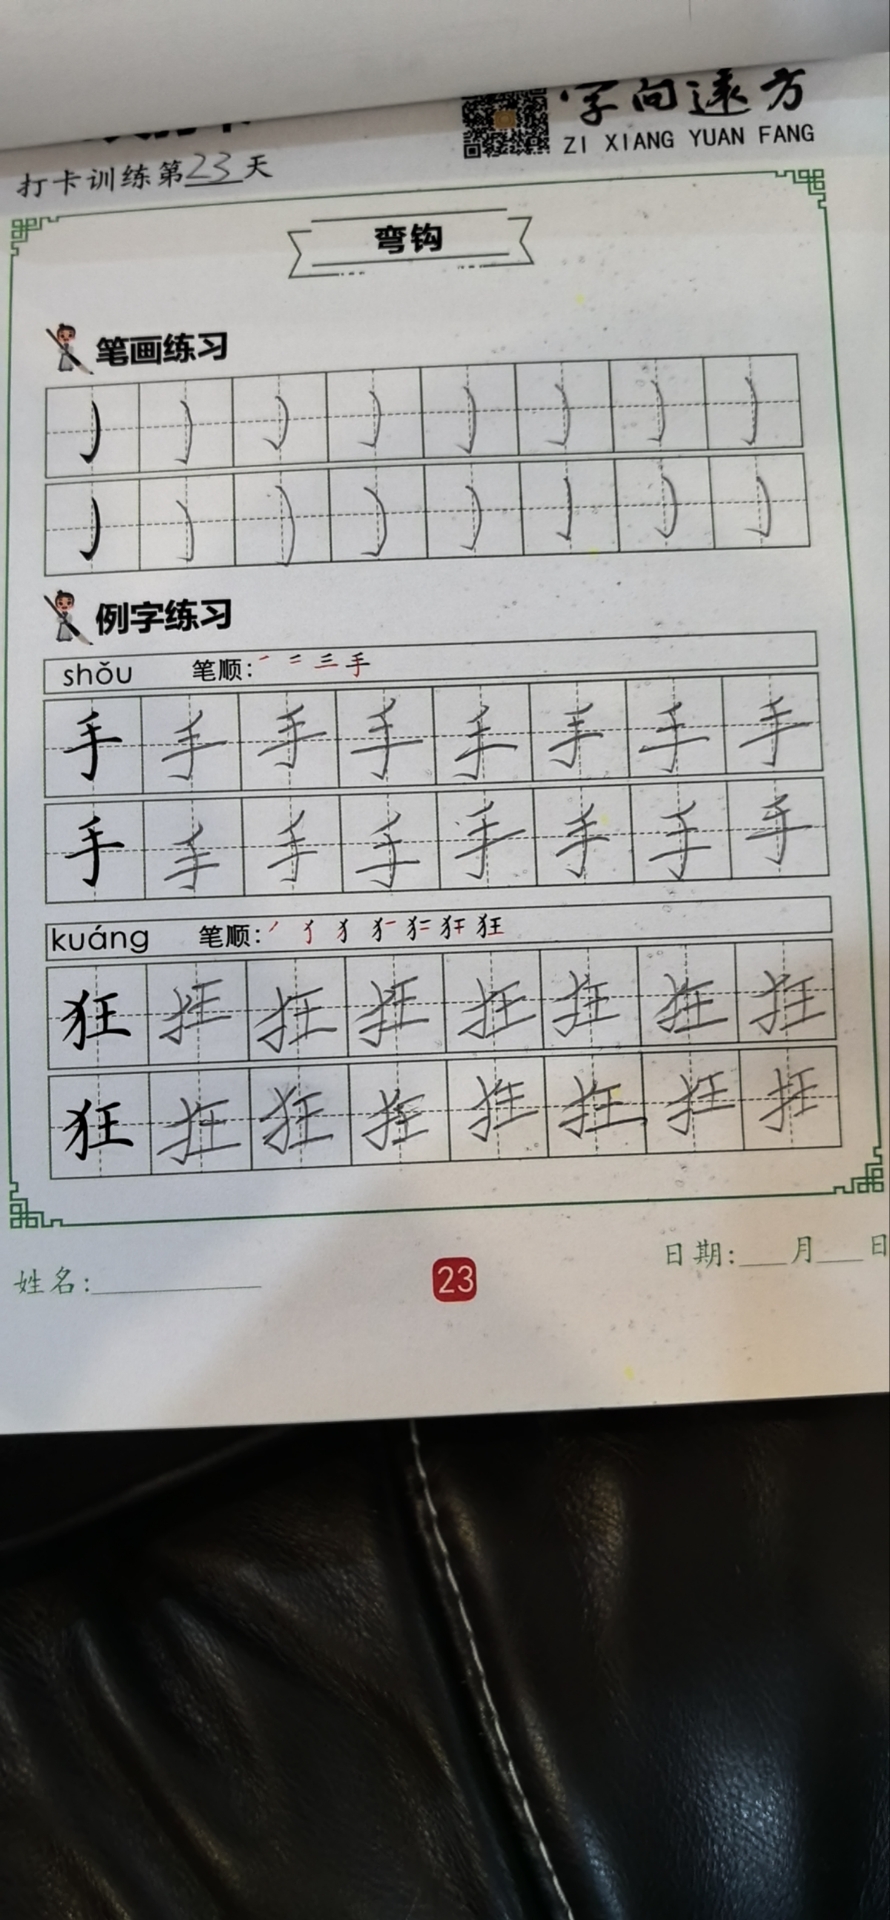 字向远方
ZI XIANG YUAN FANG
打卡训练第23天
弯钩
笔画练习
例字练习
shǒu 笔顺: 手
手 手 手 手 手 手 手 手
手 手 手 手 手 手 手 手
kuáng 笔顺: 狂
狂 狂 狂 狂 狂 狂 狂 狂
狂 狂 狂 狂 狂 狂 狂 狂
姓名:
23
日期: 月 日